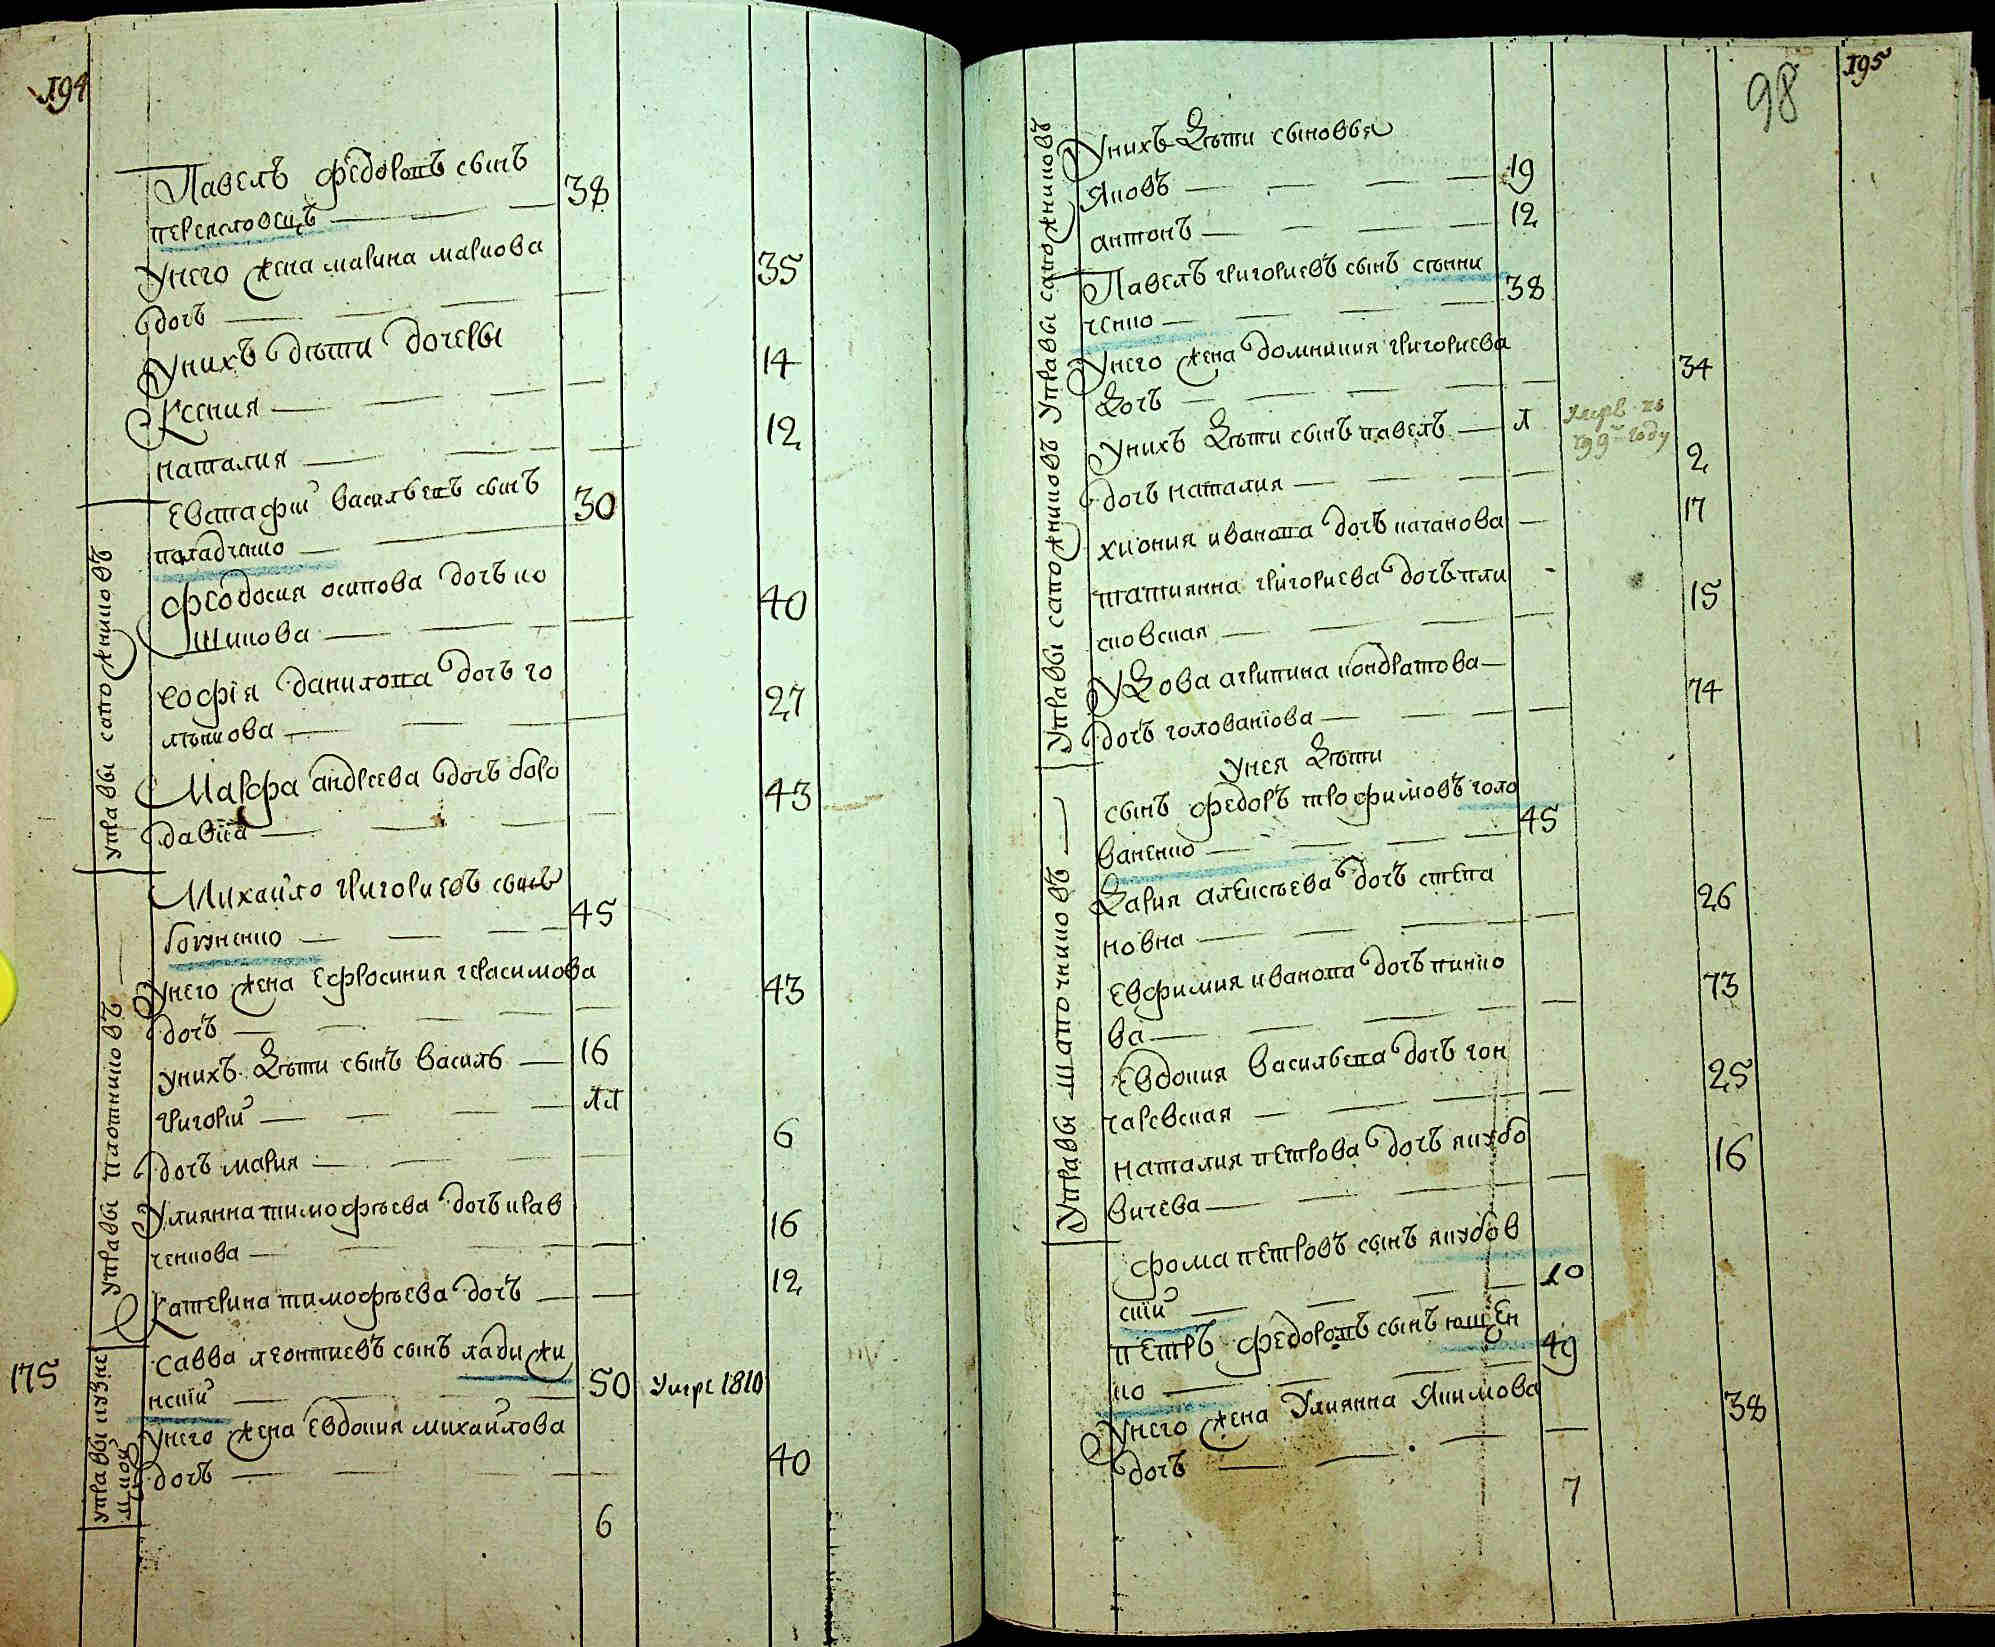 194
Павелъ Федоровъ сынъ
перекловецъ 38
Унего жена марина маркова
дочъ 35
Унихъ дѣти дочеры
Ксения 14
наталия 12
Управы сапожниковъ
Евстафий Васильевъ сынъ
паладченко 30
Феодосия осипова дочъ ко
шикова 40
София данилова дочъ го
лѣикова 27
Марфа андреева дочъ боро
давка 43
Управы плотниковъ
Михайло григориевъ сынъ
богуненко 45
Унего жена Ефросиния герасимова
дочъ 43
унихъ дѣти сынъ василь 16
григорий 11
дочъ мария 6
Улиянна тимофѣева дочъ крав
ченкова 16
Катерина тимофѣева дочъ 12
175
управы кузне
цкой
савва леонтиевъ сынъ ладижи
нский 50 умре 1810
унего жена Евдокия михайлова
дочъ 40
6
98
195
Управы сапожниковъ Управы сапожниковъ
Унихъ дѣти сыновья
Яковъ 19
антонъ 12
Павелъ григориевъ сынъ сѣнни
ченко 38
Унего жена домникия григориева
дочъ 34
Унихъ дѣти сынъ павелъ 1 умре
799 году
дочъ наталия 2
хиония иванова дочъ качанова 17
татиянна григориева дочъ пли
сковская 15
Удова агрипина кондратова
дочъ головаniова 74
Управы шапочниковъ
Унея дѣти
сынъ федоръ трофимовъ голо
ваненко 45
Дария алексѣева дочъ степа
новна 26
Евфимия иванова дочъ пинко
ва 73
Евдокия васильева дочъ гон
чаревская 25
наталия петрова дочъ якубо
вичева 16
Фома петровъ сынъ якубов
ский 10
петръ федоровъ сынъ ющен
ко 49
Унего жена Улиянна Якимова
дочъ 38
7